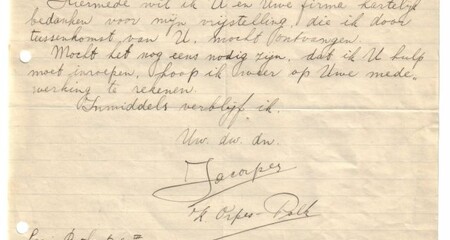 Hiermede wil ik U en Uwe firma hartelijk
bedanken voor mijn vrijstelling, die ik door
tussenkomst van U, mocht ontvangen.
Mocht het nog eens nodig zijn, dat ik U hulp
moet inroepen, hoop ik weer op Uwe mede-
werking te rekenen.
Inmiddels verblijf ik.
Uw. dw. dn.